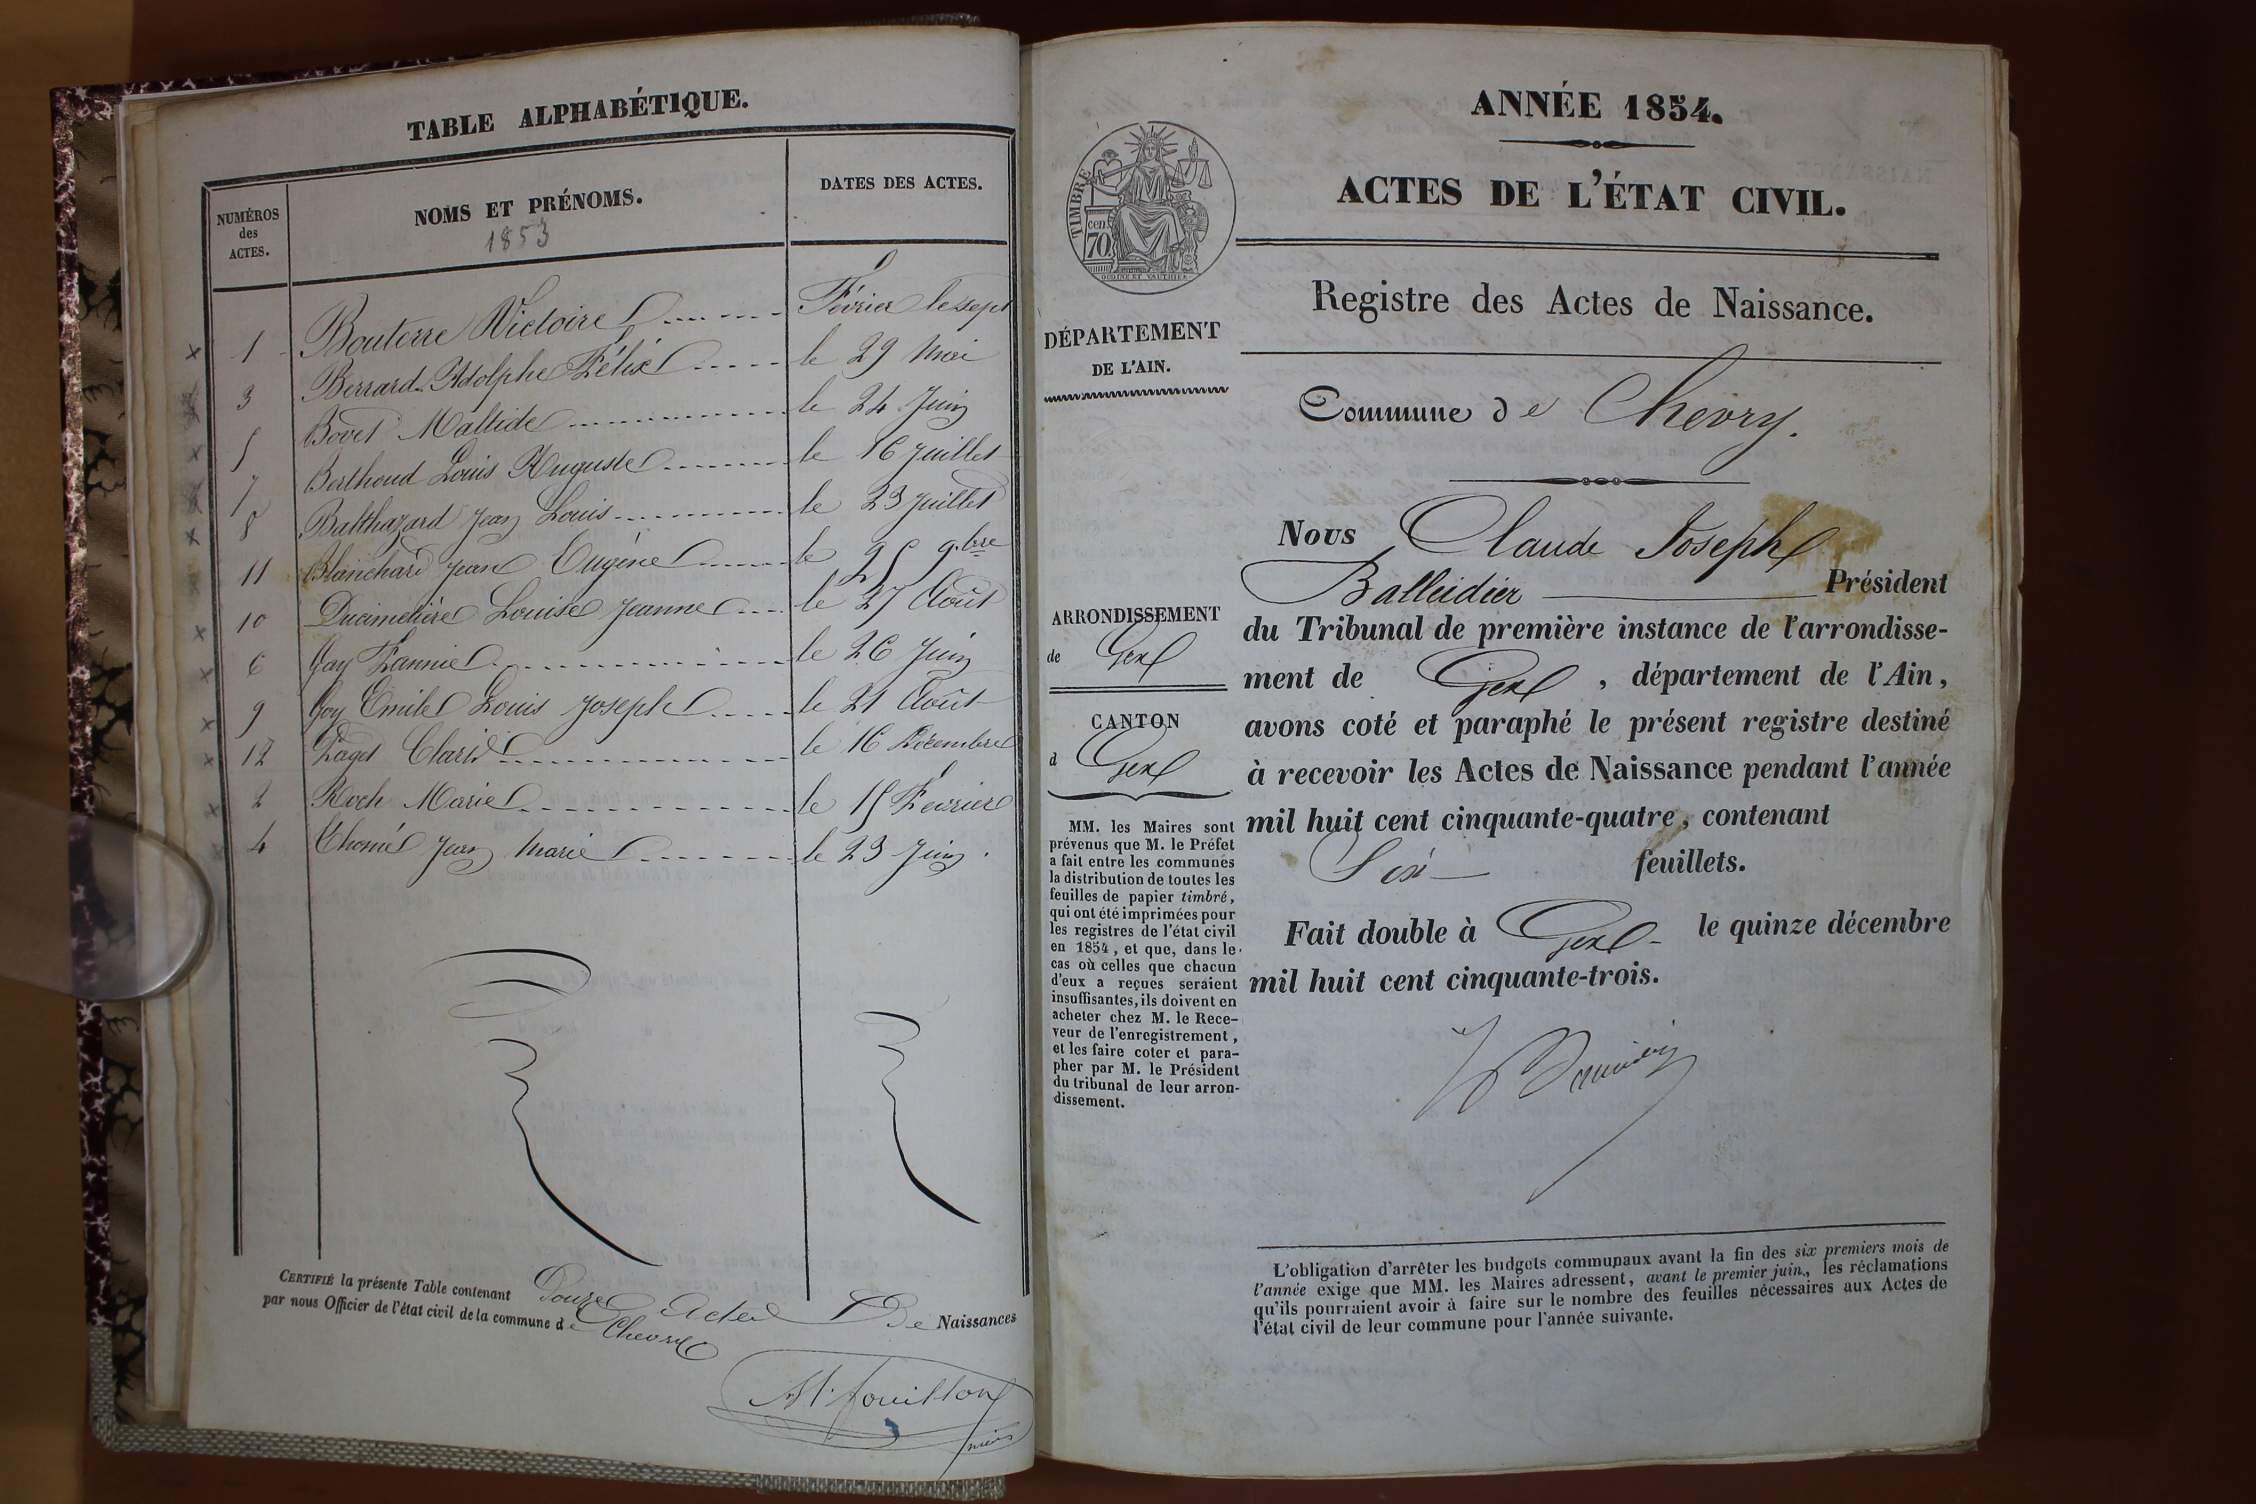 TABLE ALPHABÉTIQUE.
NUMÉROS des ACTES.
NOMS ET PRÉNOMS.
1853
DATES DES ACTES.
1 Bouterre Victoire Février le sept
3 Berrard Adolphe Félix le 29 Mai
5 Bovet Maltide le 24 Juin
7 Berthoud Louis Auguste le 16 Juillet
8 Balthazard Jean Louis le 23 Juillet
11 Blanchard Jean Eugène le 25 9.bre
10 Ducimetière Louise Jeanne le 27 Août
6 Gay Fannie le 26 Juin
9 Goy Emile Louis Joseph le 21 Août
12 Paget le 16 Décembre
2 Roch Marie le 15 Février
4 Thomé Jean Marie le 23 Juin.
CERTIFIÉ la présente Table contenant Douze Actes De Naissances
par nous Officier de l'état civil de la commune de Chevry
ANNÉE 1854.
ACTES DE L'ÉTAT CIVIL.
TIMBRE
70 cen.
Registre des Actes de Naissance.
DÉPARTEMENT
DE L'AIN.
Commune de Chevry.
Nous Claude Joseph
Balleidier Président
du Tribunal de première instance de l'arrondisse-
ment de Gex, département de l'Ain,
avons coté et paraphé le présent registre destiné
à recevoir les Actes de Naissance pendant l'année
mil huit cent cinquante-quatre, contenant
Six feuillets.
Fait double à Gex le quinze décembre
mil huit cent cinquante-trois.
ARRONDISSEMENT
de Gex
CANTON
d Gex
MM. les Maires sont
prévenus que M. le Préfet
a fait entre les communes
la distribution de toutes les
feuilles de papier timbré,
qui ont été imprimées pour
les registres de l'état civil
en 1854, et que, dans le
cas où celles que chacun
d'eux a reçues seraient
insuffisantes, ils doivent en
acheter chez M. le Rece-
veur de l'enregistrement,
et les faire coter et para-
pher par M. le Président
du tribunal de leur arron-
dissement.
L'obligation d'arrêter les budgets communaux avant la fin des six premiers mois de
l'année exige que MM. les Maires adressent, avant le premier juin, les réclamations
qu'ils pourraient avoir à faire sur le nombre des feuilles nécessaires aux Actes de
l'état civil de leur commune pour l'année suivante.